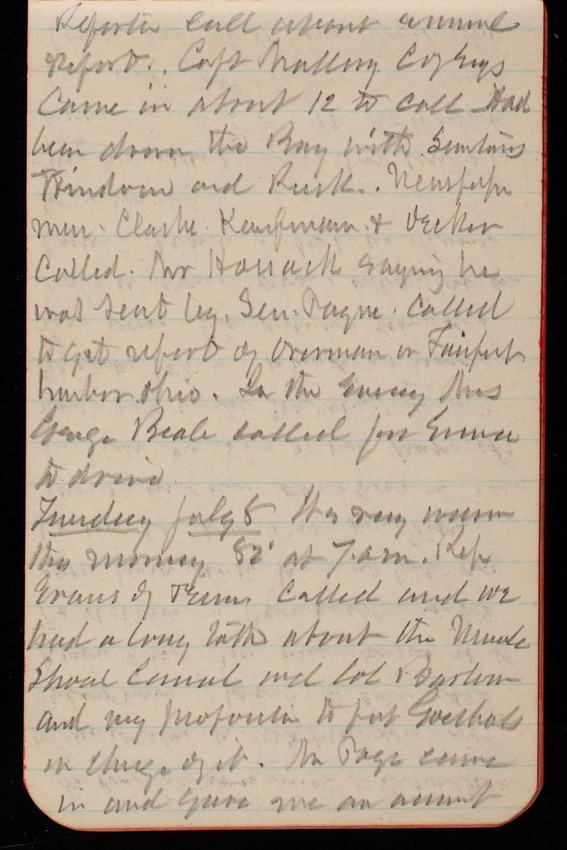 Reporter call about annual
report. Capt Mallery Cof Engs
Came in about 12 to call Had
been down the Bay with Senators
Windom and Rusk. Newspaper
men. Clarke Kaufman & Decker
Called. Mr Horrack saying he
was sent by. Sen. Payne. called
to get report of Overman on Fairport
harbor Ohio. In the evening Mrs
George Beale called for Emma
to drive
Tuesday July 8 It is very warm
this morning 82° at 7 a.m. Rep
Evans of Tenn. Called and we
had a long talk about the Muscle
Shoal Canal and Col Barlow
and my proposition to put Goethals
in charge of it. Mr Page came
in and gave me an amount